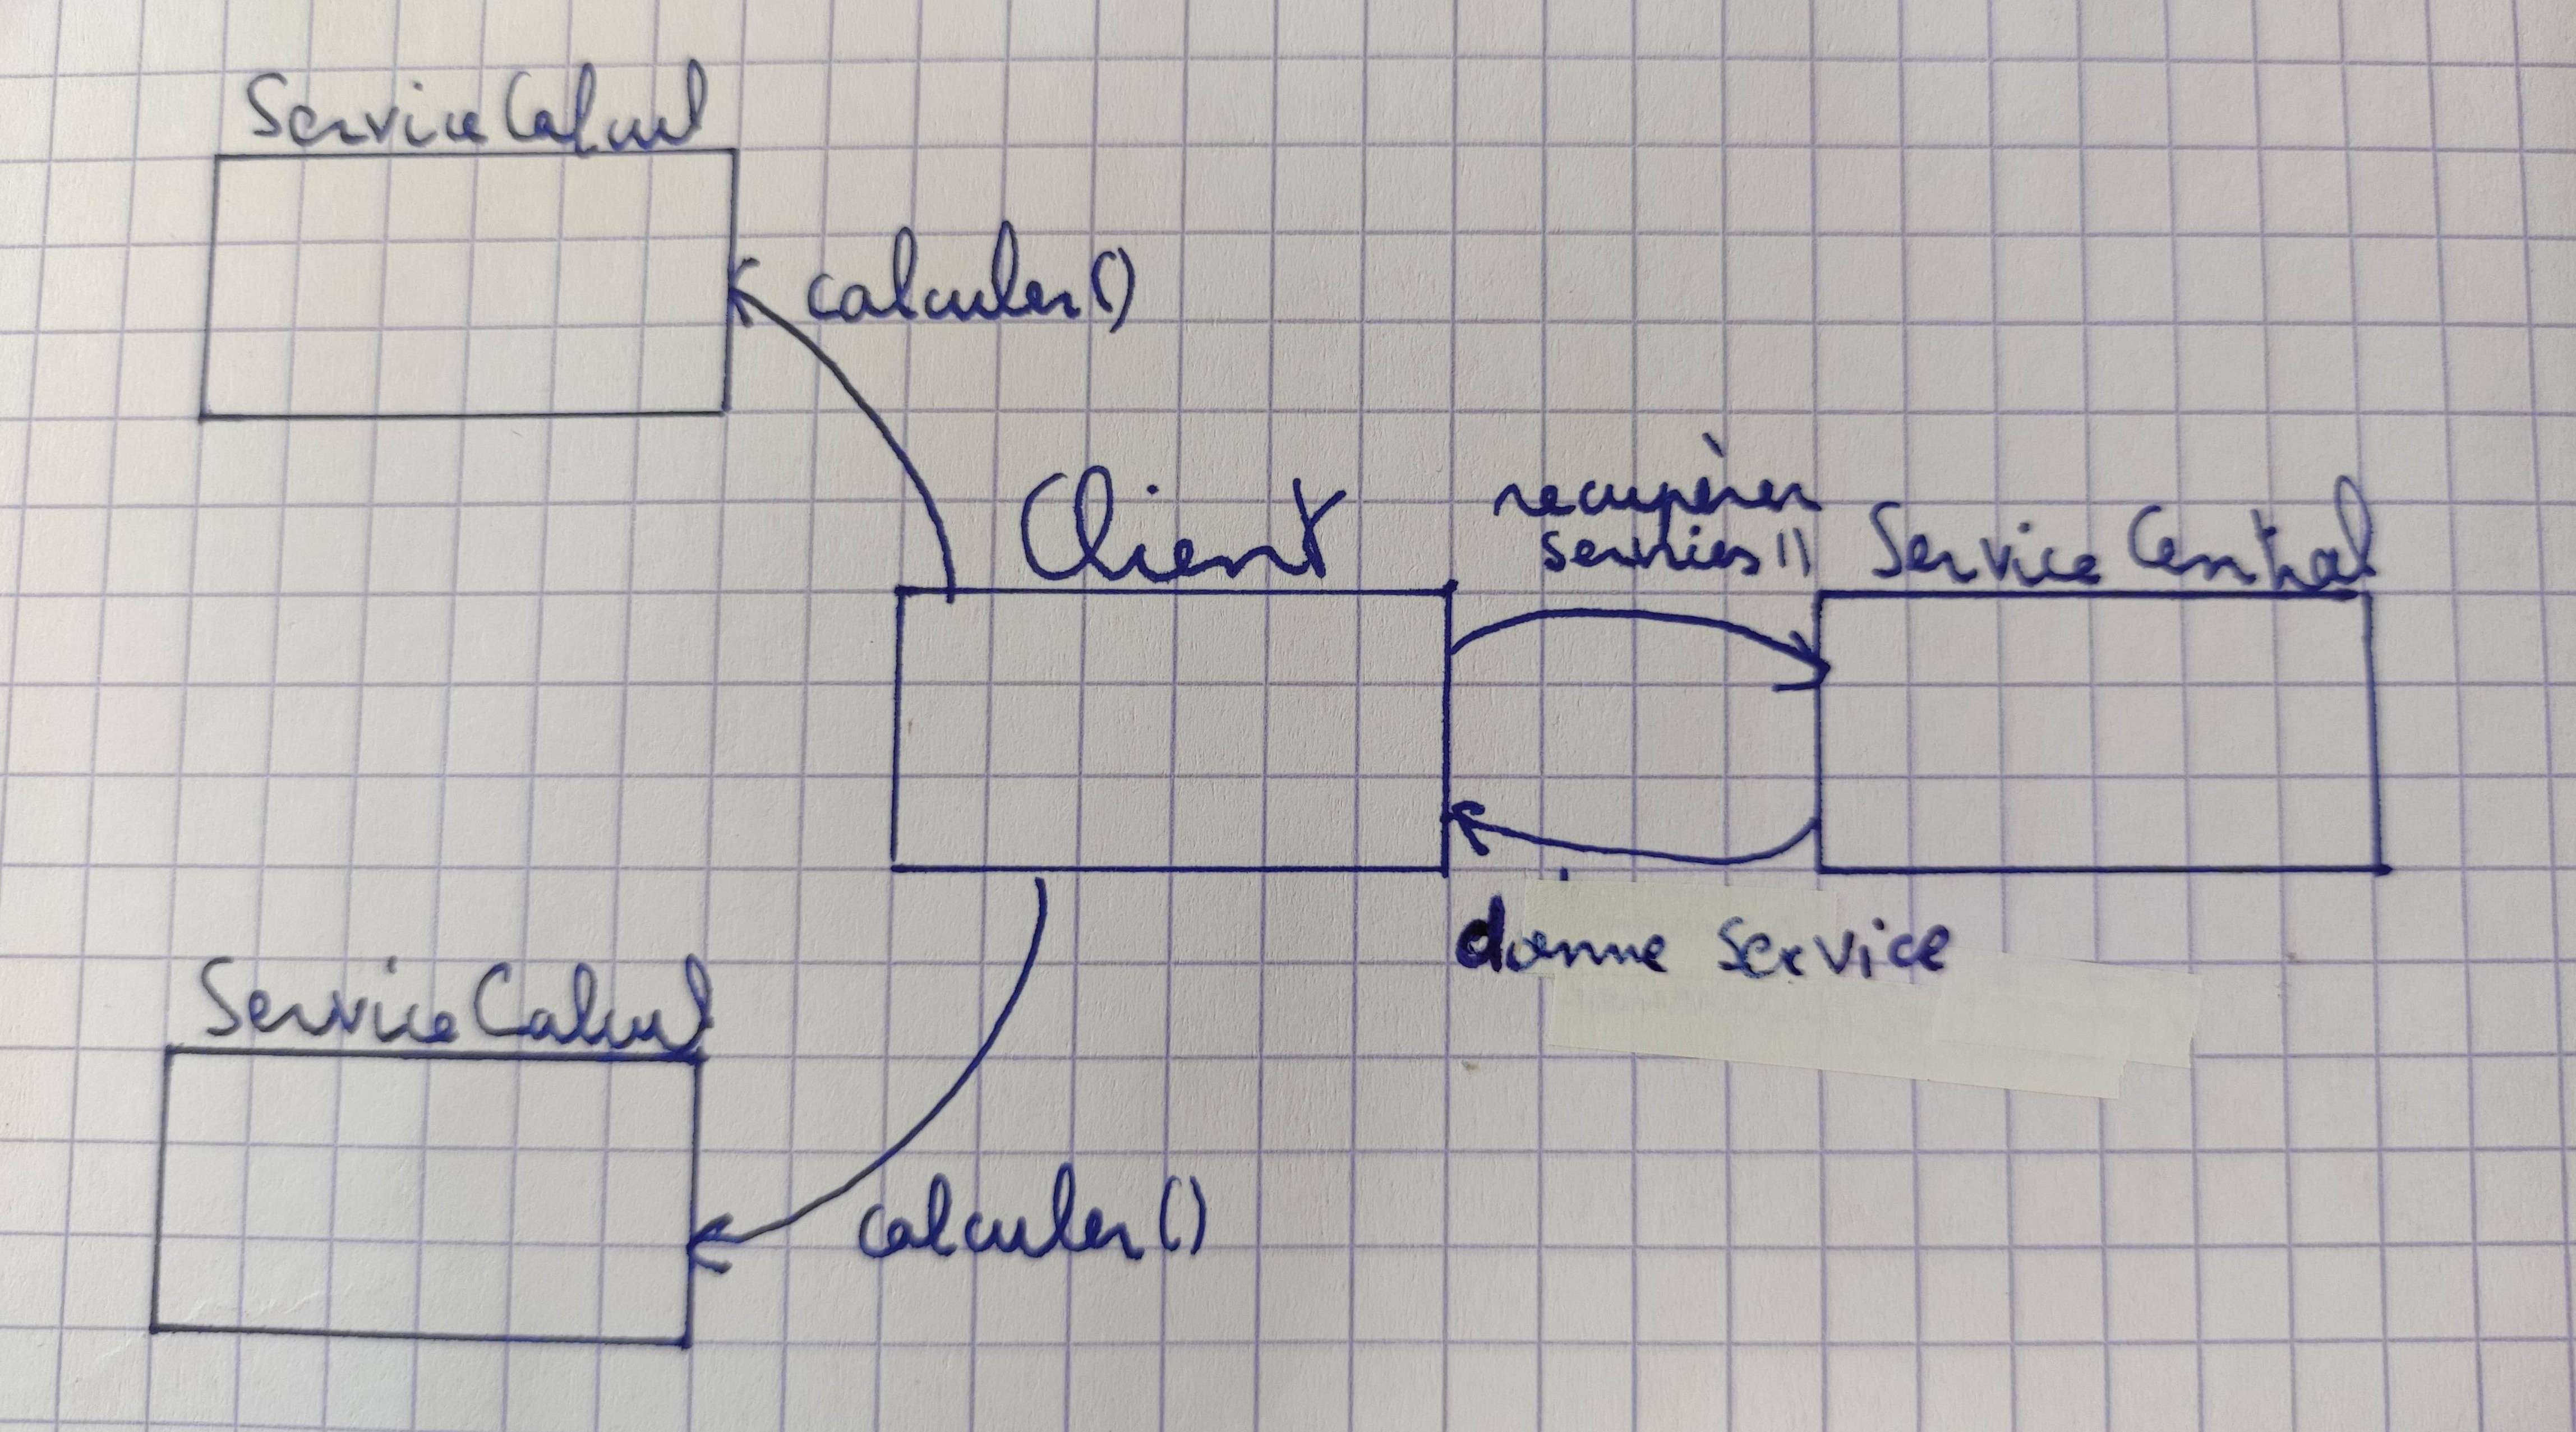 Service Calcul
calculer()
Client
recupèrer
services()
Service Central
donne service
Service Calcul
calculer()